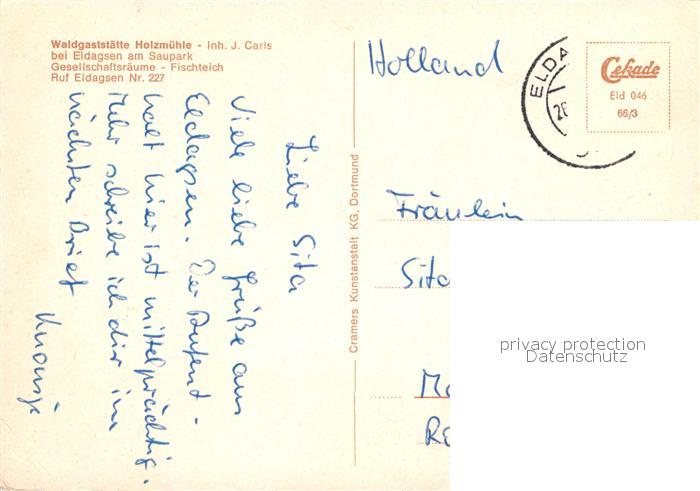 Waldgaststätte Holzmühle - Inh. J. Carls
bei Eldagsen am Saupark
Gesellschaftsräume - Fischteich
Ruf Eldagsen Nr. 227
Liebe Sita
Viele liebe Grüße aus
Eldagsen. Der Aufent-
halt hier ist mittelprächtig.
Mehr schreibe ich dir im
nächsten Brief
Cramers Kunstanstalt KG. Dortmund
Holland
ELDA
Cekade
Eld 046
66/3
Fräulein
Sita
privacy protection
Datenschutz